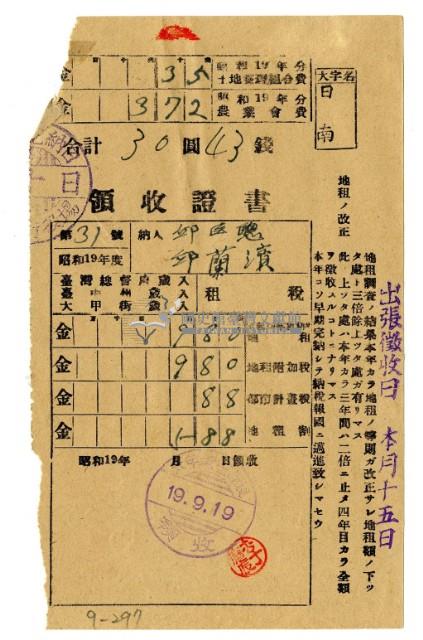 大字名
日南
昭和19年分
土地整理組合費
金 35
昭和19年分
農業會費
金 372
合計 30圓43錢
領收證書
第31號
納人
邱蘭濱
昭和19年度
臺灣總督府歲入
臺中州歲入
大甲街歲入
租稅
金 980
地租附加稅
金 88
都市計畫稅
金 188
地租割
昭和19年 月 日領收
19.9.19
收
9-297
地租ノ改正
地租調査ノ結果本年カラ地租ノ等則ガ改正サレ地租額ノ下ッ
タ處ト三倍餘上ッタ處ガ有リマス
此ノ上ッタ處ハ本年カラ三年間ハ二倍ニ止メ四年目カラ全額
ヲ徵收スルコトニナリマス
本年コソ早期完納シテ納稅報國ニ邁進致シマセウ
出張徵收日 本月十五日